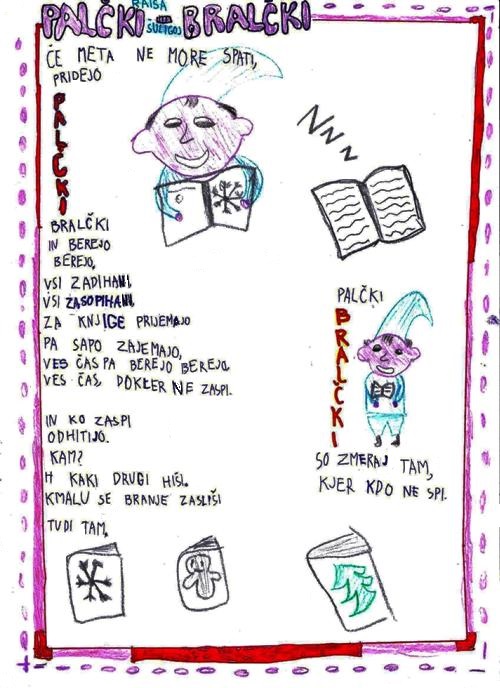 PALČKI - BRALČKI
RAISA
ČE META NE MORE SPATI,
PRIDEJO
PALČKI
BRALČKI
IN BEREJO
BEREJO,
VSI ZADIHANI,
VSI ZASOPIHANI,
ZA KNJIGE PRIJEMAJO
PA SAPO ZAJEMAJO,
VES ČAS PA BEREJO BEREJO.
VES ČAS, DOKLER NE ZASPI.
IN KO ZASPI
ODHITIJO.
KAM?
H KAKI DRUGI HIŠI.
KMALU SE BRANJE ZASLIŠI
TUDI TAM,
NNN
PALČKI
BRALČKI
SO ZMERAJ TAM,
KJER KDO NE SPI.